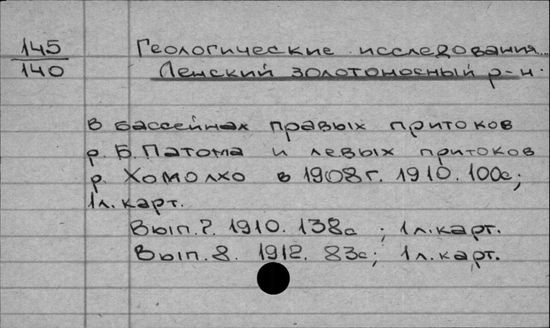 145
140
Геологические исследования...
Ленский золотоносный р-н.
в бассейнах правых притоков
р. Б. Патома и левых притоков
р. Хомолхо в 1908г. 1910. 100с;
1л. карт.
Вып. 7. 1910. 138с ; 1л. карт.
Вып. 8. 1912. 83с; 1л. карт.